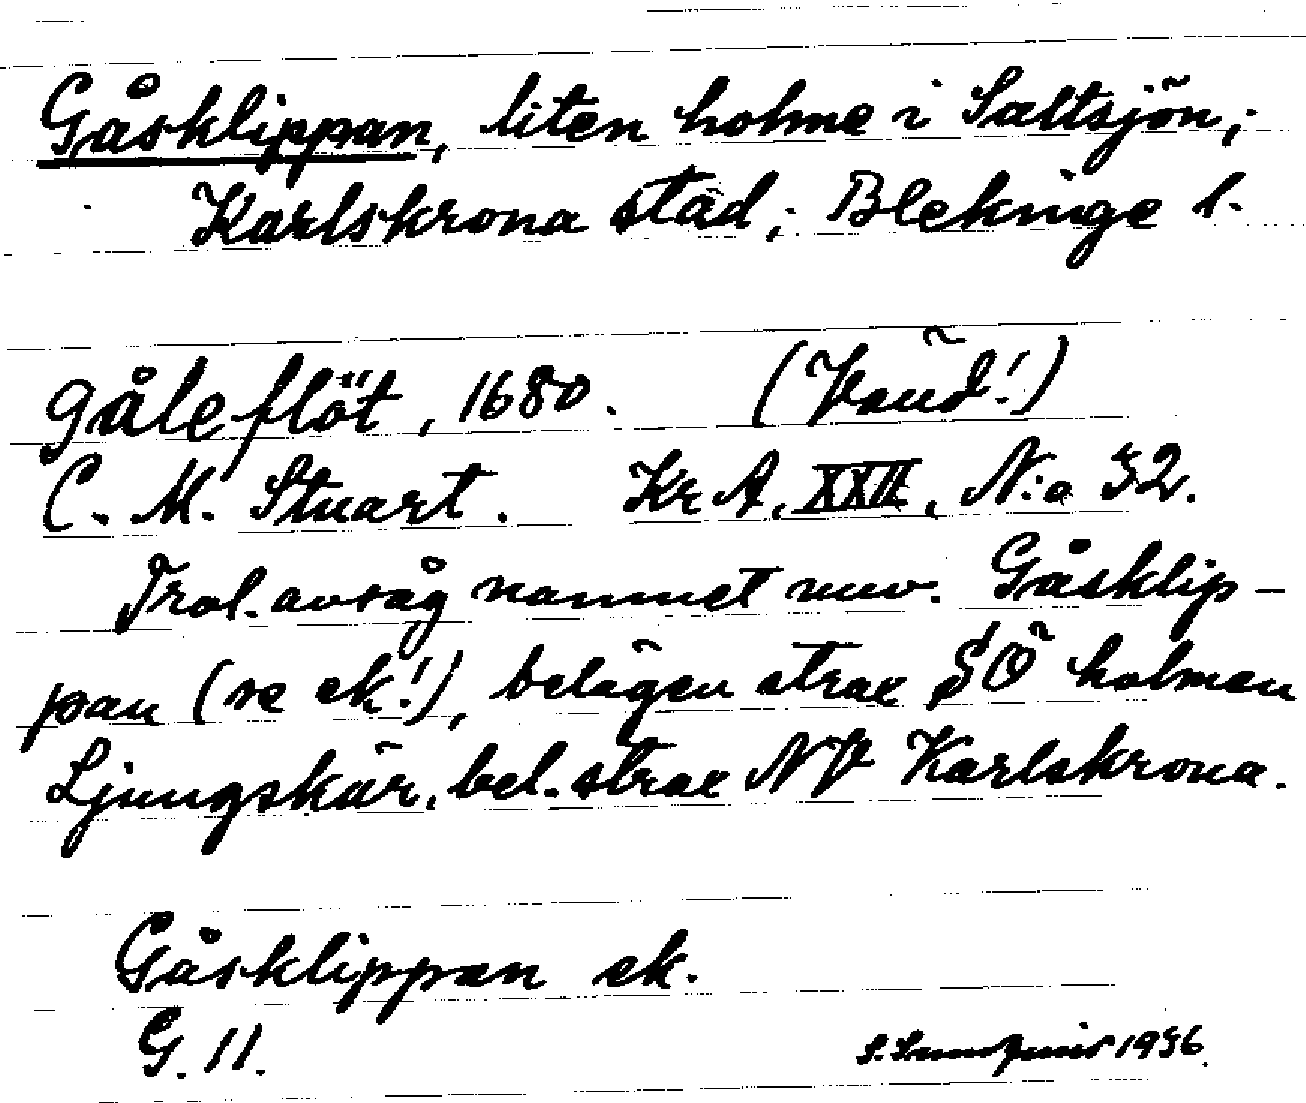 Gåsklippan, liten holme i Saltsjön,;
Karlskrona stad,; Blekinge l.
gåleflöt, 1680.
C. M. Stuart. Kr A, XXII, N:o 32.
Trol. avsåg namnet nuv. Gåsklip-
pan (se ek!), belägen strax SÖ holmen
Ljungskär, bel. strax NV Karlskrona.
Gåsklippan ek.
G. 11.